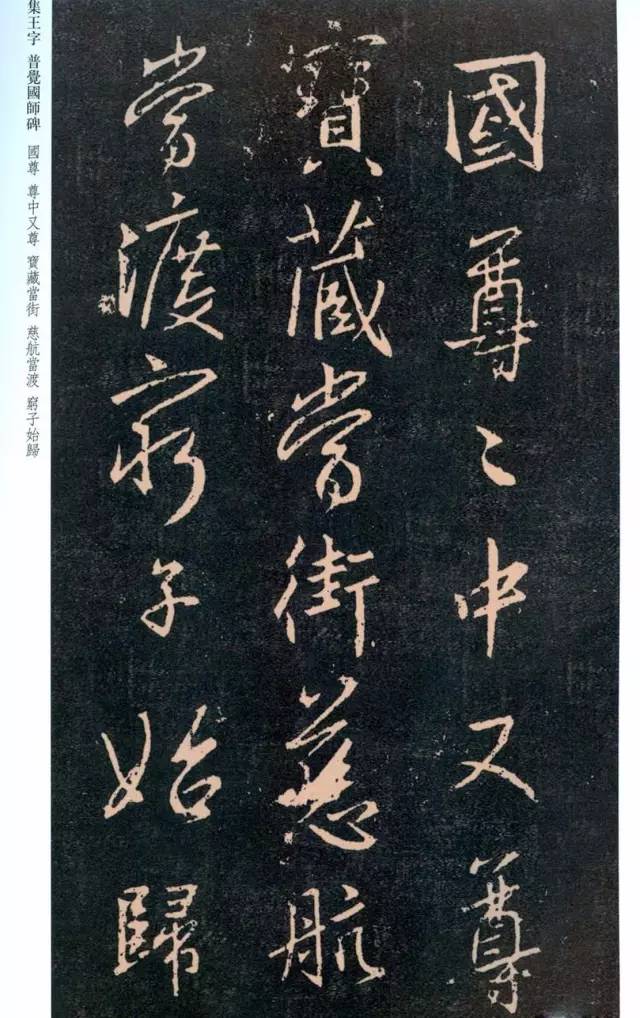 國尊〻中又尊
寶藏當街慈航
當渡窮子始歸
集王字 普覺國師碑 國尊 尊中又尊 寶藏當街 慈航當渡 窮子始歸